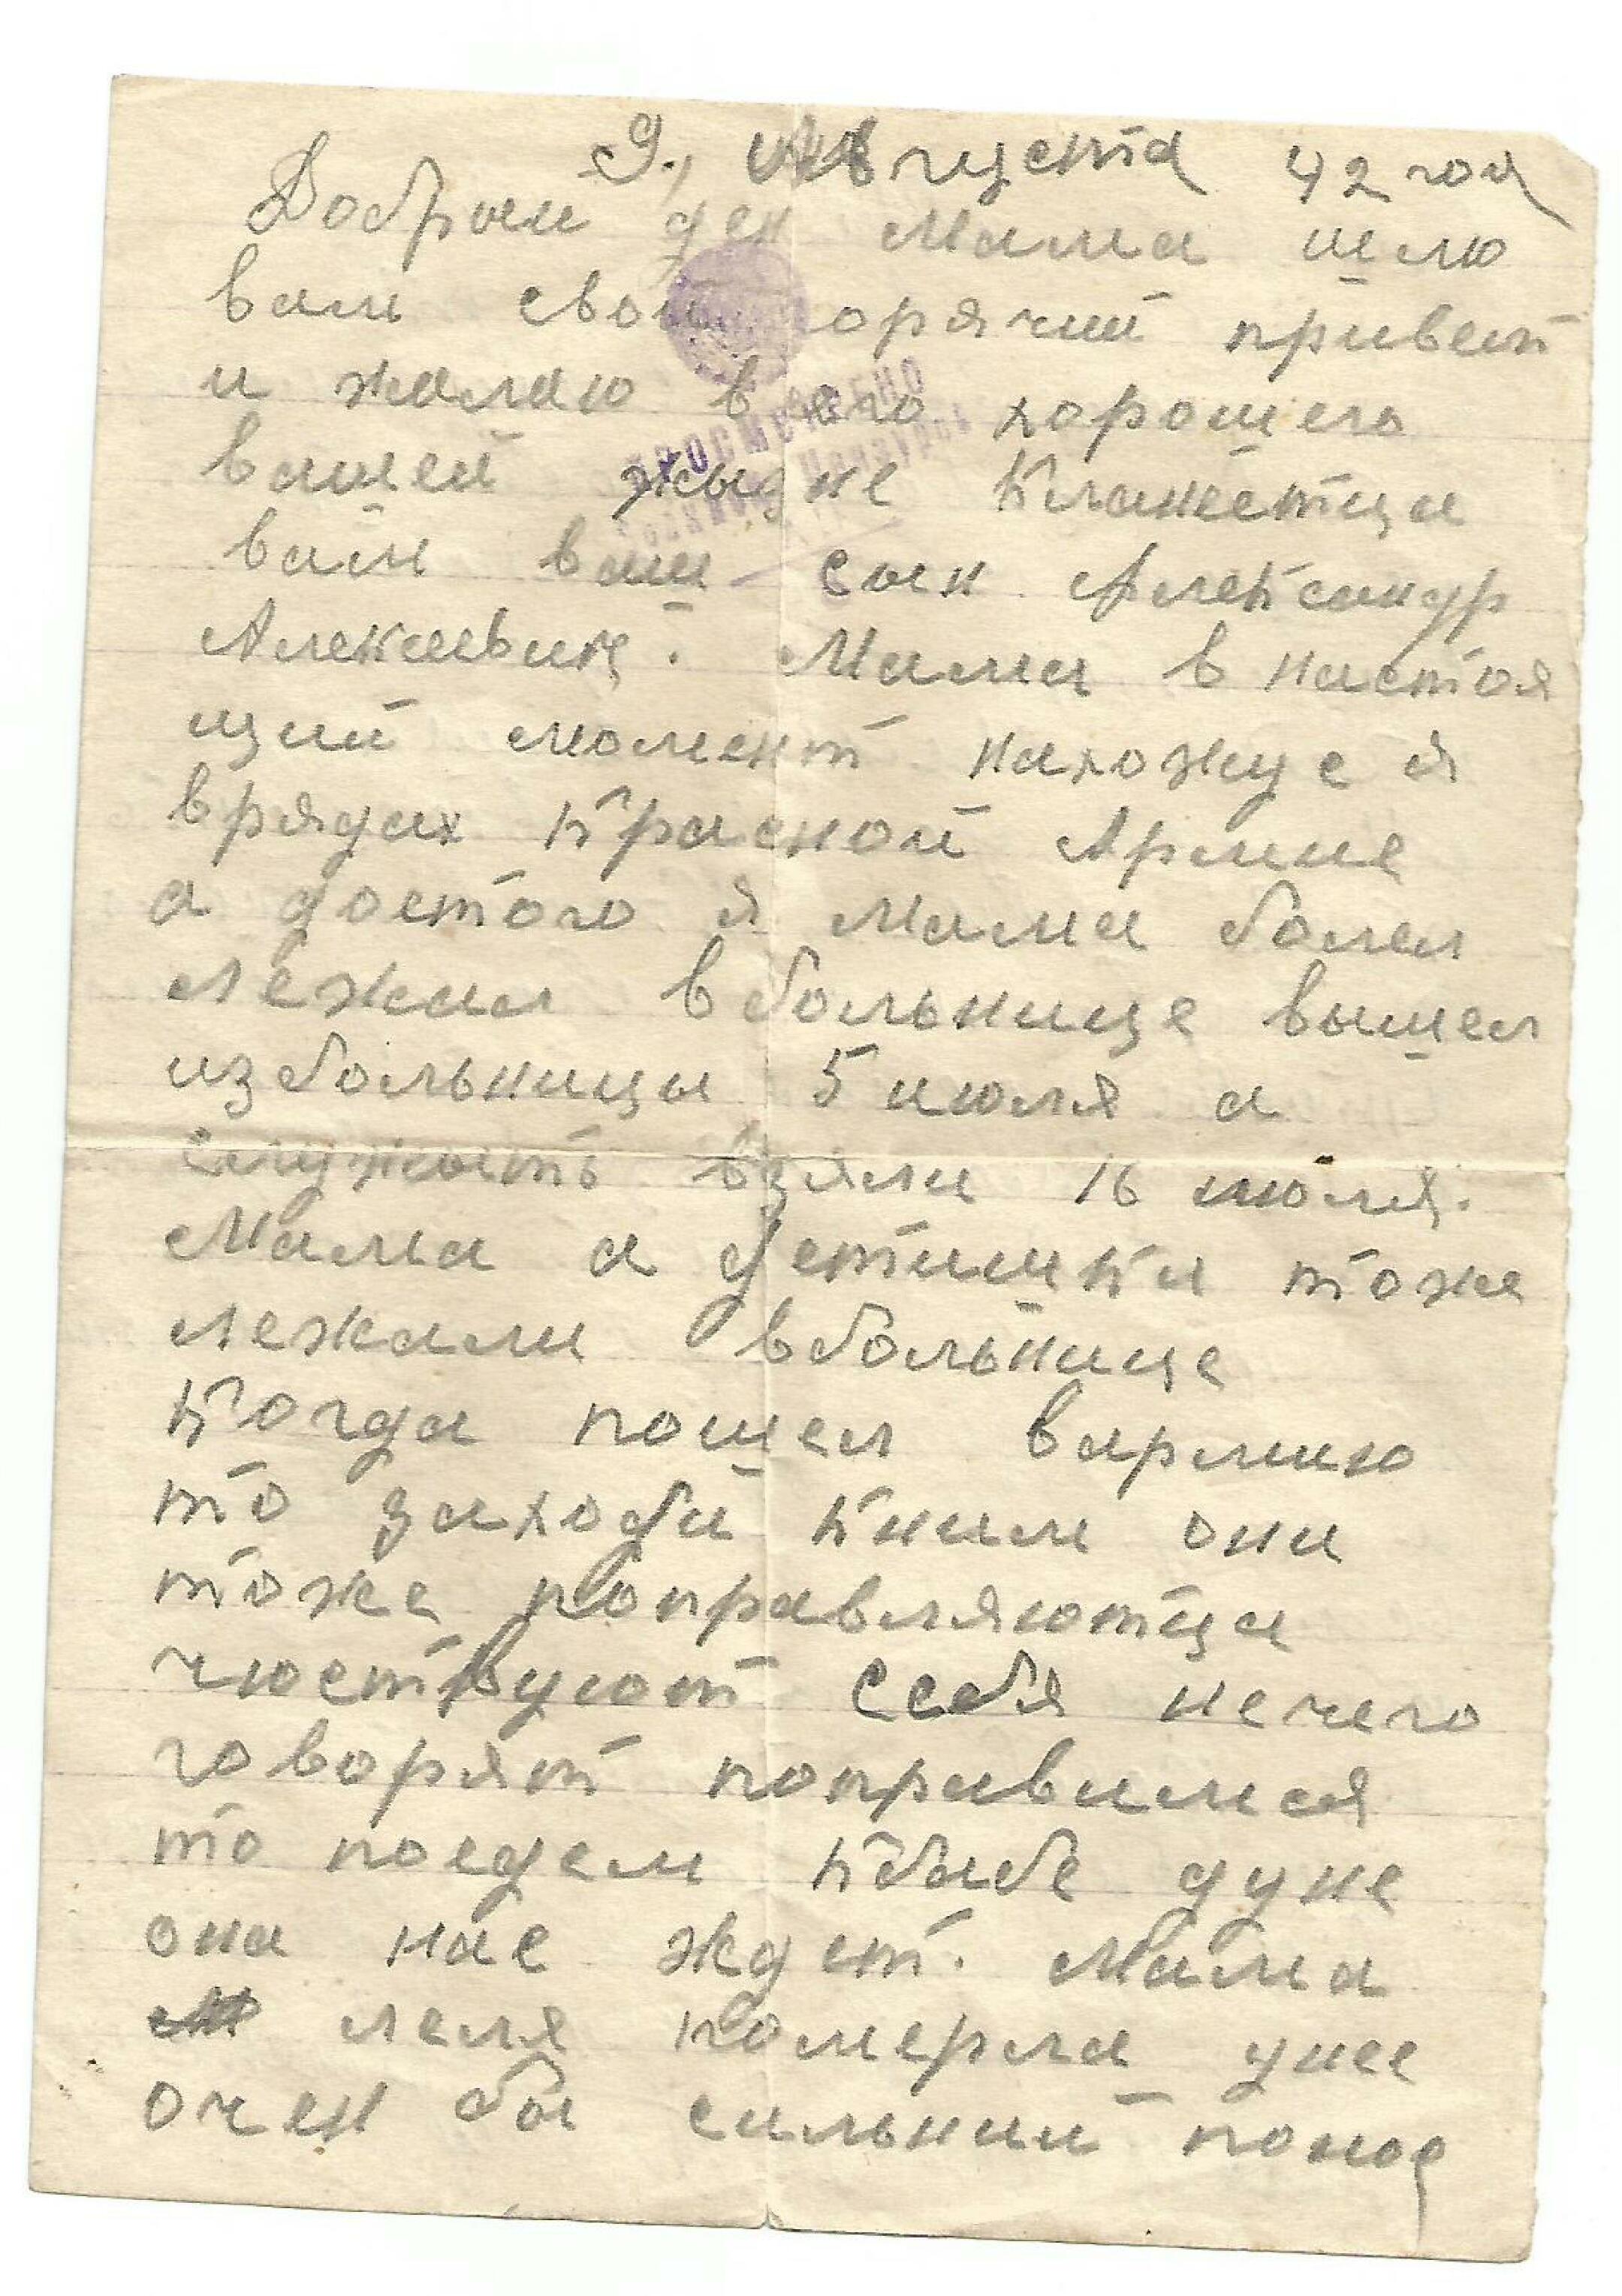 9, Августа 42 год
Добрыи ден Мама шлю
вам свои горячий привет
и жалаю всего хорошего
вашей жызне Кланеетца
вам ваш сын Александр
Алексеевич. Мама в настоя
щий момент нахожус я
врядах Красной Армие
а достого я Мама болел
лежал вбольнице вышел
избольницы 5 июля а
служыть взяли 16 июля.
Мама а детишки тоже
лежали вбольнице
Когда пошел вармию
то заходи Кним они
тоже поправляютца
чюствуют себя нечего
говорят поправимся
то поедем Кбабе дуне
она нас ждет. Мама
леля померла унее
очен бы сильний понос
ПРОСМОТРЕНО
Военной Цензурой